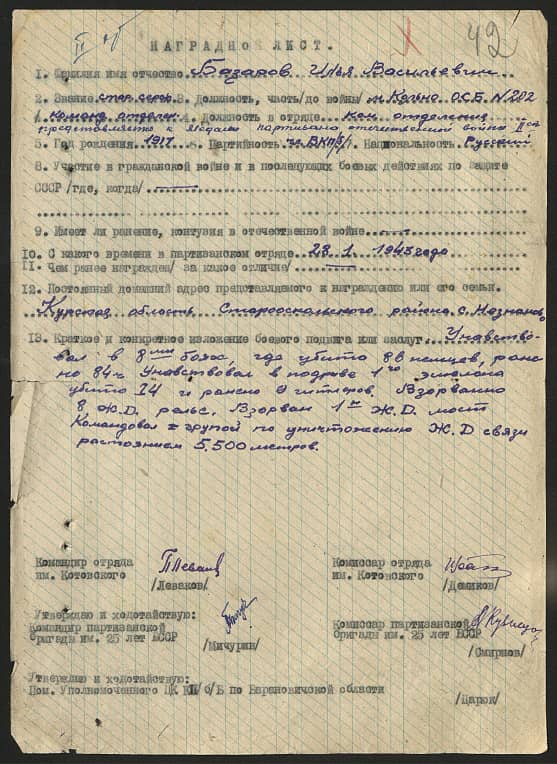 42
НАГРАДНОЙ ЛИСТ.
1. Фамилия имя отчество Базаров Илья Васильевич
2. Звание стар. серж. 3. Должность, часть/до войны/ О.С.Б. №202
команд. отделен. 4. Должность в отряде ком отделения
представляется к медали партизана отечественной войны II ст
5. Год рождения 1917 6. Партийность чл ВКП/б/ 7. Национальность Русский
8. Участие в гражданской войне и в последующих боевых действиях по защите
СССР /где, когда/
9. Имеет ли ранение, контузия в отечественной войне
10. С какого времени в партизанском отряде 23. 1. 1943 года
11. Чем ранее награжден/ за какое отличие/
12. Постоянный домашний адрес представляемого к награждению или его семьи.
Курская область Старооскольского района с.
13. Краткое и конкретное изложение боевого подвига или заслуг. Учавство-
вал в 8ми боях, где убито 88 немцев, ране-
но 84. Учавствовал в подрыве 1го эшелона
убито 14 и ранено 9 гитлеров. Взорванно
8 Ж.Д. рельс. Взорван 1н Ж.Д. мост
Командовал групой по уничтожению Ж.Д связи
растоянием 5.500 метров.
Командир отряда
им. Котовского
/Леваков/
Комиссар отряда
им. Котовского
/Демиков/
Утверждаю и ходотайствую:
Командир партизанской
бригады им. 25 лет БССР
/Мичурин/
Комиссар партизанской
бригады им. 25 лет БССР
/Смирнов/
Утверждаю и ходотайствую:
Пом. Уполномоченного ЦК КП/б/Б по Барановичской области
/Царюк/